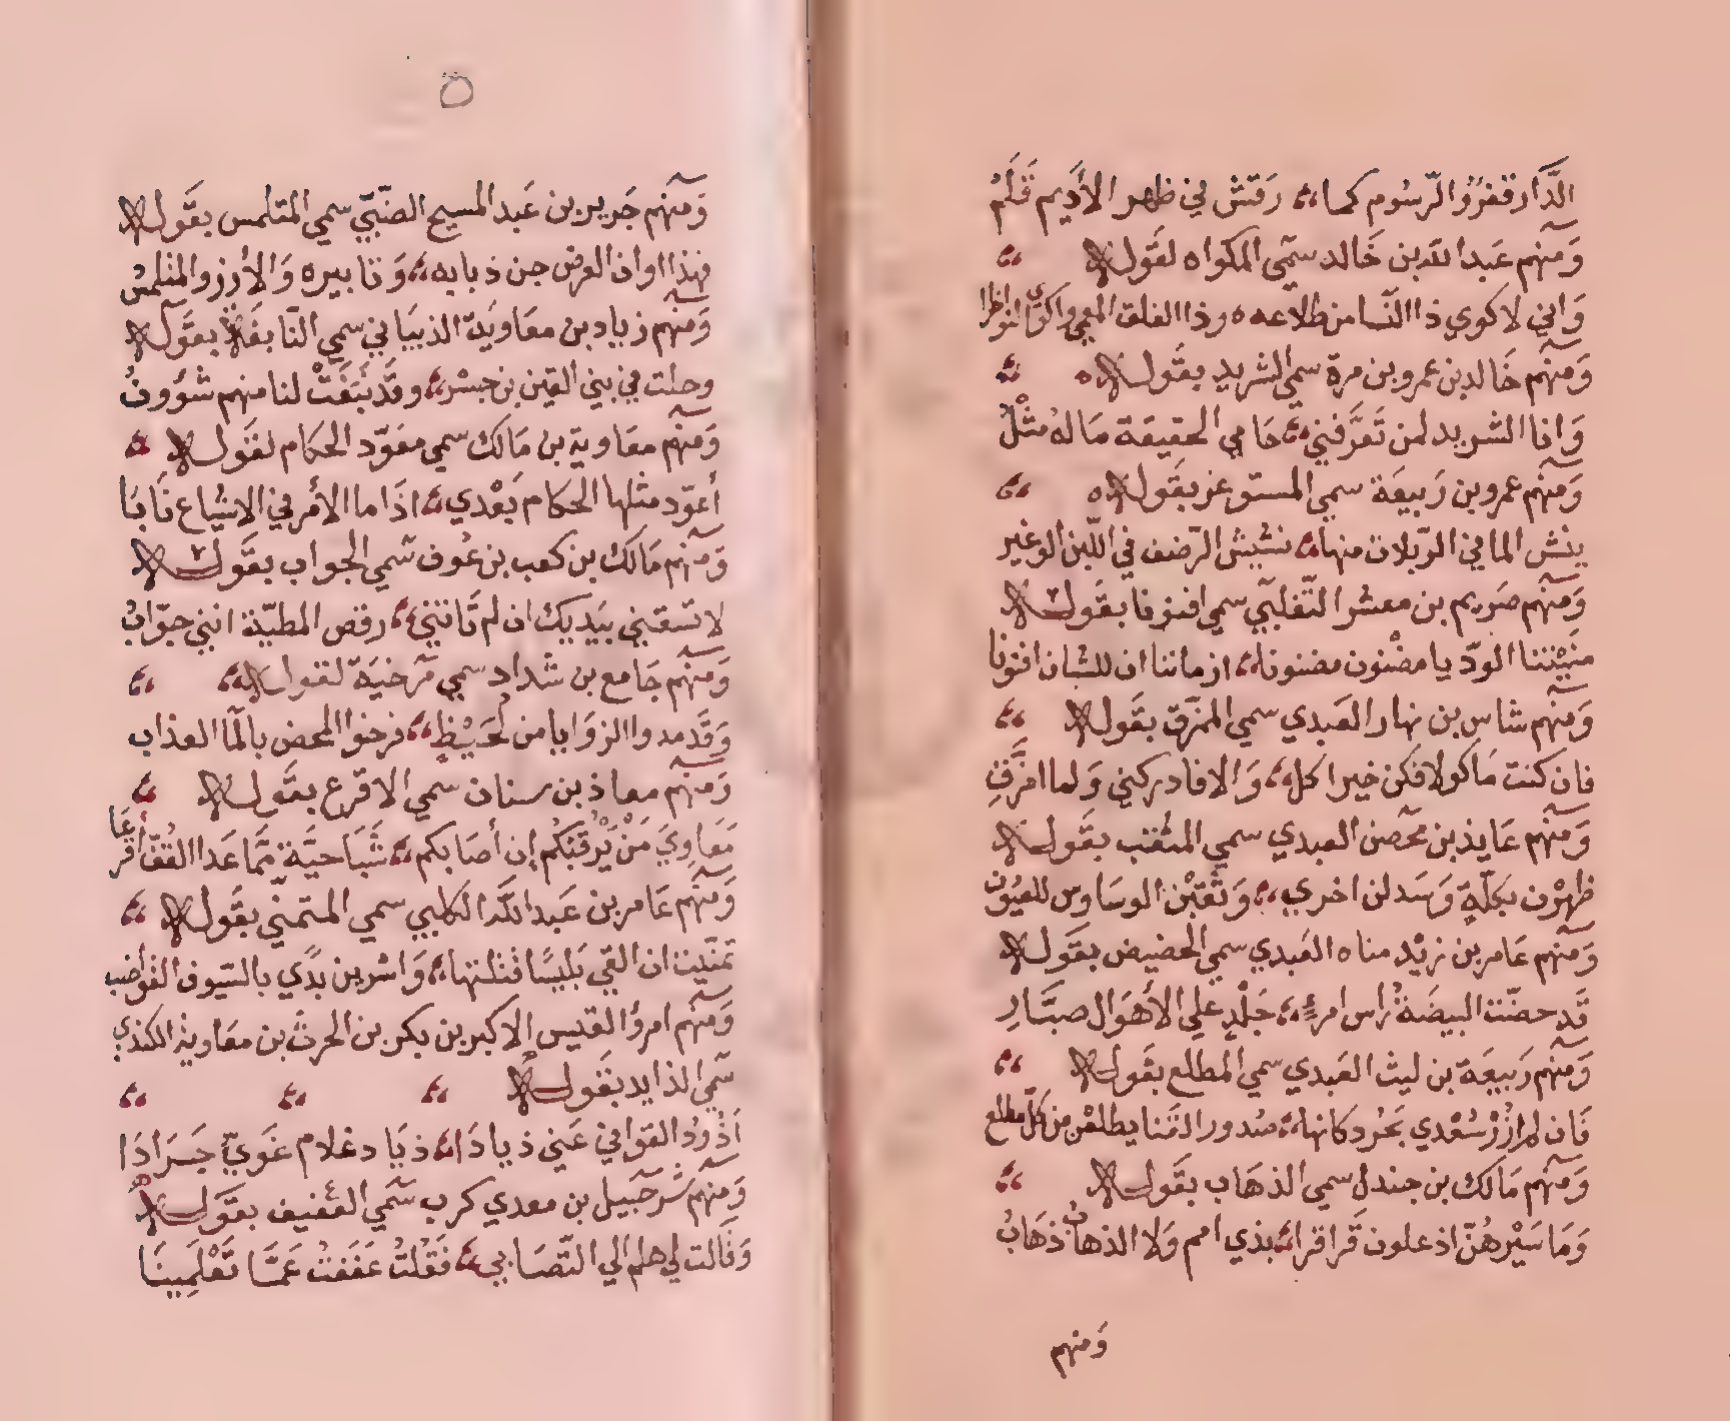 الدَّار قفرُ والرّسُوم كما ،، رَقتش في ظهر الأدِيم قَلَمُ
وَمنهم عَبد الله بن خَالد سمّي المكواه لقَوله ،،
وَاني لاكوي ذا النّسا من ظلاعه ٥ وذا الفلق المعمي واكوي النواظرا
وَمنهم خَالد بن عمرو بن مرة سمي الشريد بقَوله ٥ ،،
وَانا الشريد لمن تَعرَّفني ،، حَامي الحقيقة مَا لهُ مثْلُ
وَمنهم عمرو بن رَبيعَة سمي المستوغز بقَوله ٥ ،،
ينش الما في الرّبلات منها ،، نشيش الرّضف في اللّبن الوغير
وَمنهم صَريم بن معشر التّغلبي سمي افنونا بقَوله
منّيْتنا الودّ يا مضْنون مضنونا ،، ازماننا ان للشبان افنونا
وَمنهم شاس بن نهار العَبدي سمي الممزق بقَوله ،،
فان كنت مَاكولا فكن خير اكل ،، وَالا فادركني وَلما امزَّقِ
وَمنهم عَايذ بن محصن العبدي سمي المثقب بقَوله
ظهرْن بكلّةٍ وَسَدلن اخري ،، وَثقبْن الوسَاوس للعيُون
وَمنهم عَامر بن زيْد مناه العَبدي سمي الحضيض بقَوله
قَد حضّت البيضَةُ رَاس امرءٍ ،، جَلْدٍ علي الأهوَال صبَّارِ
وَمنهم رَبيعَة بن ليث العَبدي سمي المطلع بقَوله ،،
فَان لم ازُرْ سُعْدي بجُرد كانها ،، صُدور القَنا يطلعْن من كلّ مطلع
وَمنهم مَالك بن جندل سمي الذهَاب بقَوله ،،
وَمَا سَيْرهُنّ اذ علون قَراقرا ،، بذي امم وَلا الذهابُ ذهَابُ
وَمنهم
٥
وَمنهم جَرير بن عَبد المسيح الضّبيّ سمي المتلمس بقَوله
فهذا اوان العرض جن ذبابه ،، وَنابيره وَالأزرق المتلمسُ
وَمنهم زياد بن معَاويَة الذبيَاني سمي النّابغَة بقَوله
وحلت في بني القين بن جسْر ،، وقَد نبَغَتْ لنا منهم شؤونُ
وَمنهم معَاوية بن مَالك سمي معَوّد الحكام لقَوله ،،
أعوّد مثلها الحكام بَعْدي ،، اذَا ما الأمر في الاشيَاع نَابَا
وَمنهم مَالك بن كعب بن عُوف سمي الجواب بقَوله
لا تسقني بيَديك ان لم تَاتني ،، رقص المطيّة انني جوّابُ
وَمنهم جَامع بن شداد سمي مرخيَة لقوله ،، ،،
وَقَد مدوا الزوَايا من لُحَيْظٍ ،، فرخوا المحض بالمآ العذاب
وَمنهم معاذ بن سنان سمي الاقرع بقَوله ،،
مَعَاوِيَ مَنْ يَرْقبَكُم إن أصَابكم ،، شَبَا حيَّةٍ ممّا عَدا القُفّ أقرَعَا
وَمنهم عَامر بن عَبد الله الكلبي سمي المتمني بقَوله ،،
تمنّيت ان القي بَليسًا فقتلتها ،، وَاسْر بن بدّي بالسّيوف القوَاضب
وَمنهم امرؤ القيس الاكبر بن بكر بن الحرث بن معَاوية الكندي
سمّي الذايد بقَوله ،، ،، ،،
أذُودُ القوَافي عَني ذيادًا ،، ذيَاد غلام غَويّ جَرَادَا
وَمنهم شَرحبيل بن معدي كرب سمّي العَفيف بقَوله
وَقَالت لي هلم الي التّصَابي ،، فَقلتُ عَفَفتُ عَمَّا تَعْلَمِينَا